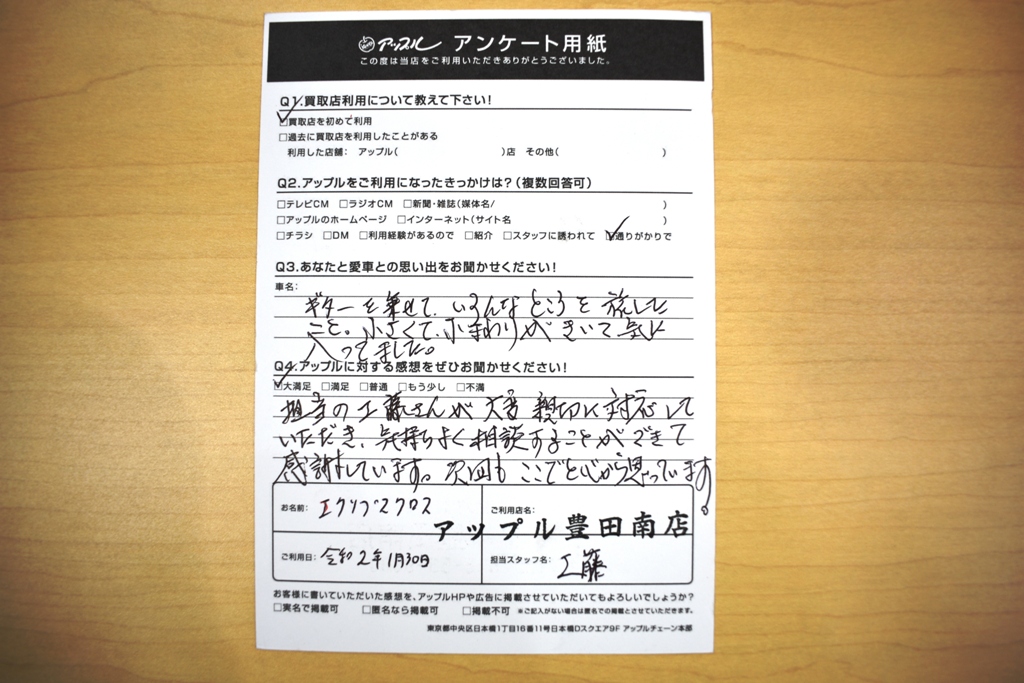 アップル アンケート用紙
この度は当店をご利用いただきありがとうございました。
Q1.買取店利用について教えて下さい!
☑買取店を初めて利用
□過去に買取店を利用したことがある
利用した店舗: アップル( )店 その他( )
Q2.アップルをご利用になったきっかけは?(複数回答可)
□テレビCM □ラジオCM □新聞・雑誌(媒体名/ )
□アップルのホームページ □インターネット(サイト名 )
□チラシ □DM □利用経験があるので □紹介 □スタッフに誘われて ☑通りがかりで
Q3.あなたと愛車との思い出をお聞かせください!
車名:
ギターを乗せて、いろんなところを旅した
こと。小さくて、小まわりがきいて気に
入ってました。
Q4.アップルに対する感想をぜひお聞かせください!
☑大満足 □満足 □普通 □もう少し □不満
担当の工藤さんが大変親切に対応して
いただき、気持ちよく相談することができて
感謝しています。次回もここでと心から思っています。
お名前: エクリプスクロス
ご利用店名:
アップル豊田南店
ご利用日: 令和2年1月30日
担当スタッフ名: 工藤
お客様に書いていただいた感想を、アップルHPや広告に掲載させていただいてもよろしいでしょうか?
□実名で掲載可 □匿名なら掲載可 □掲載不可 ※ご記入がない場合は匿名での掲載とさせていただきます。
東京都中央区日本橋1丁目16番11号日本橋Dスクエア9F アップルチェーン本部